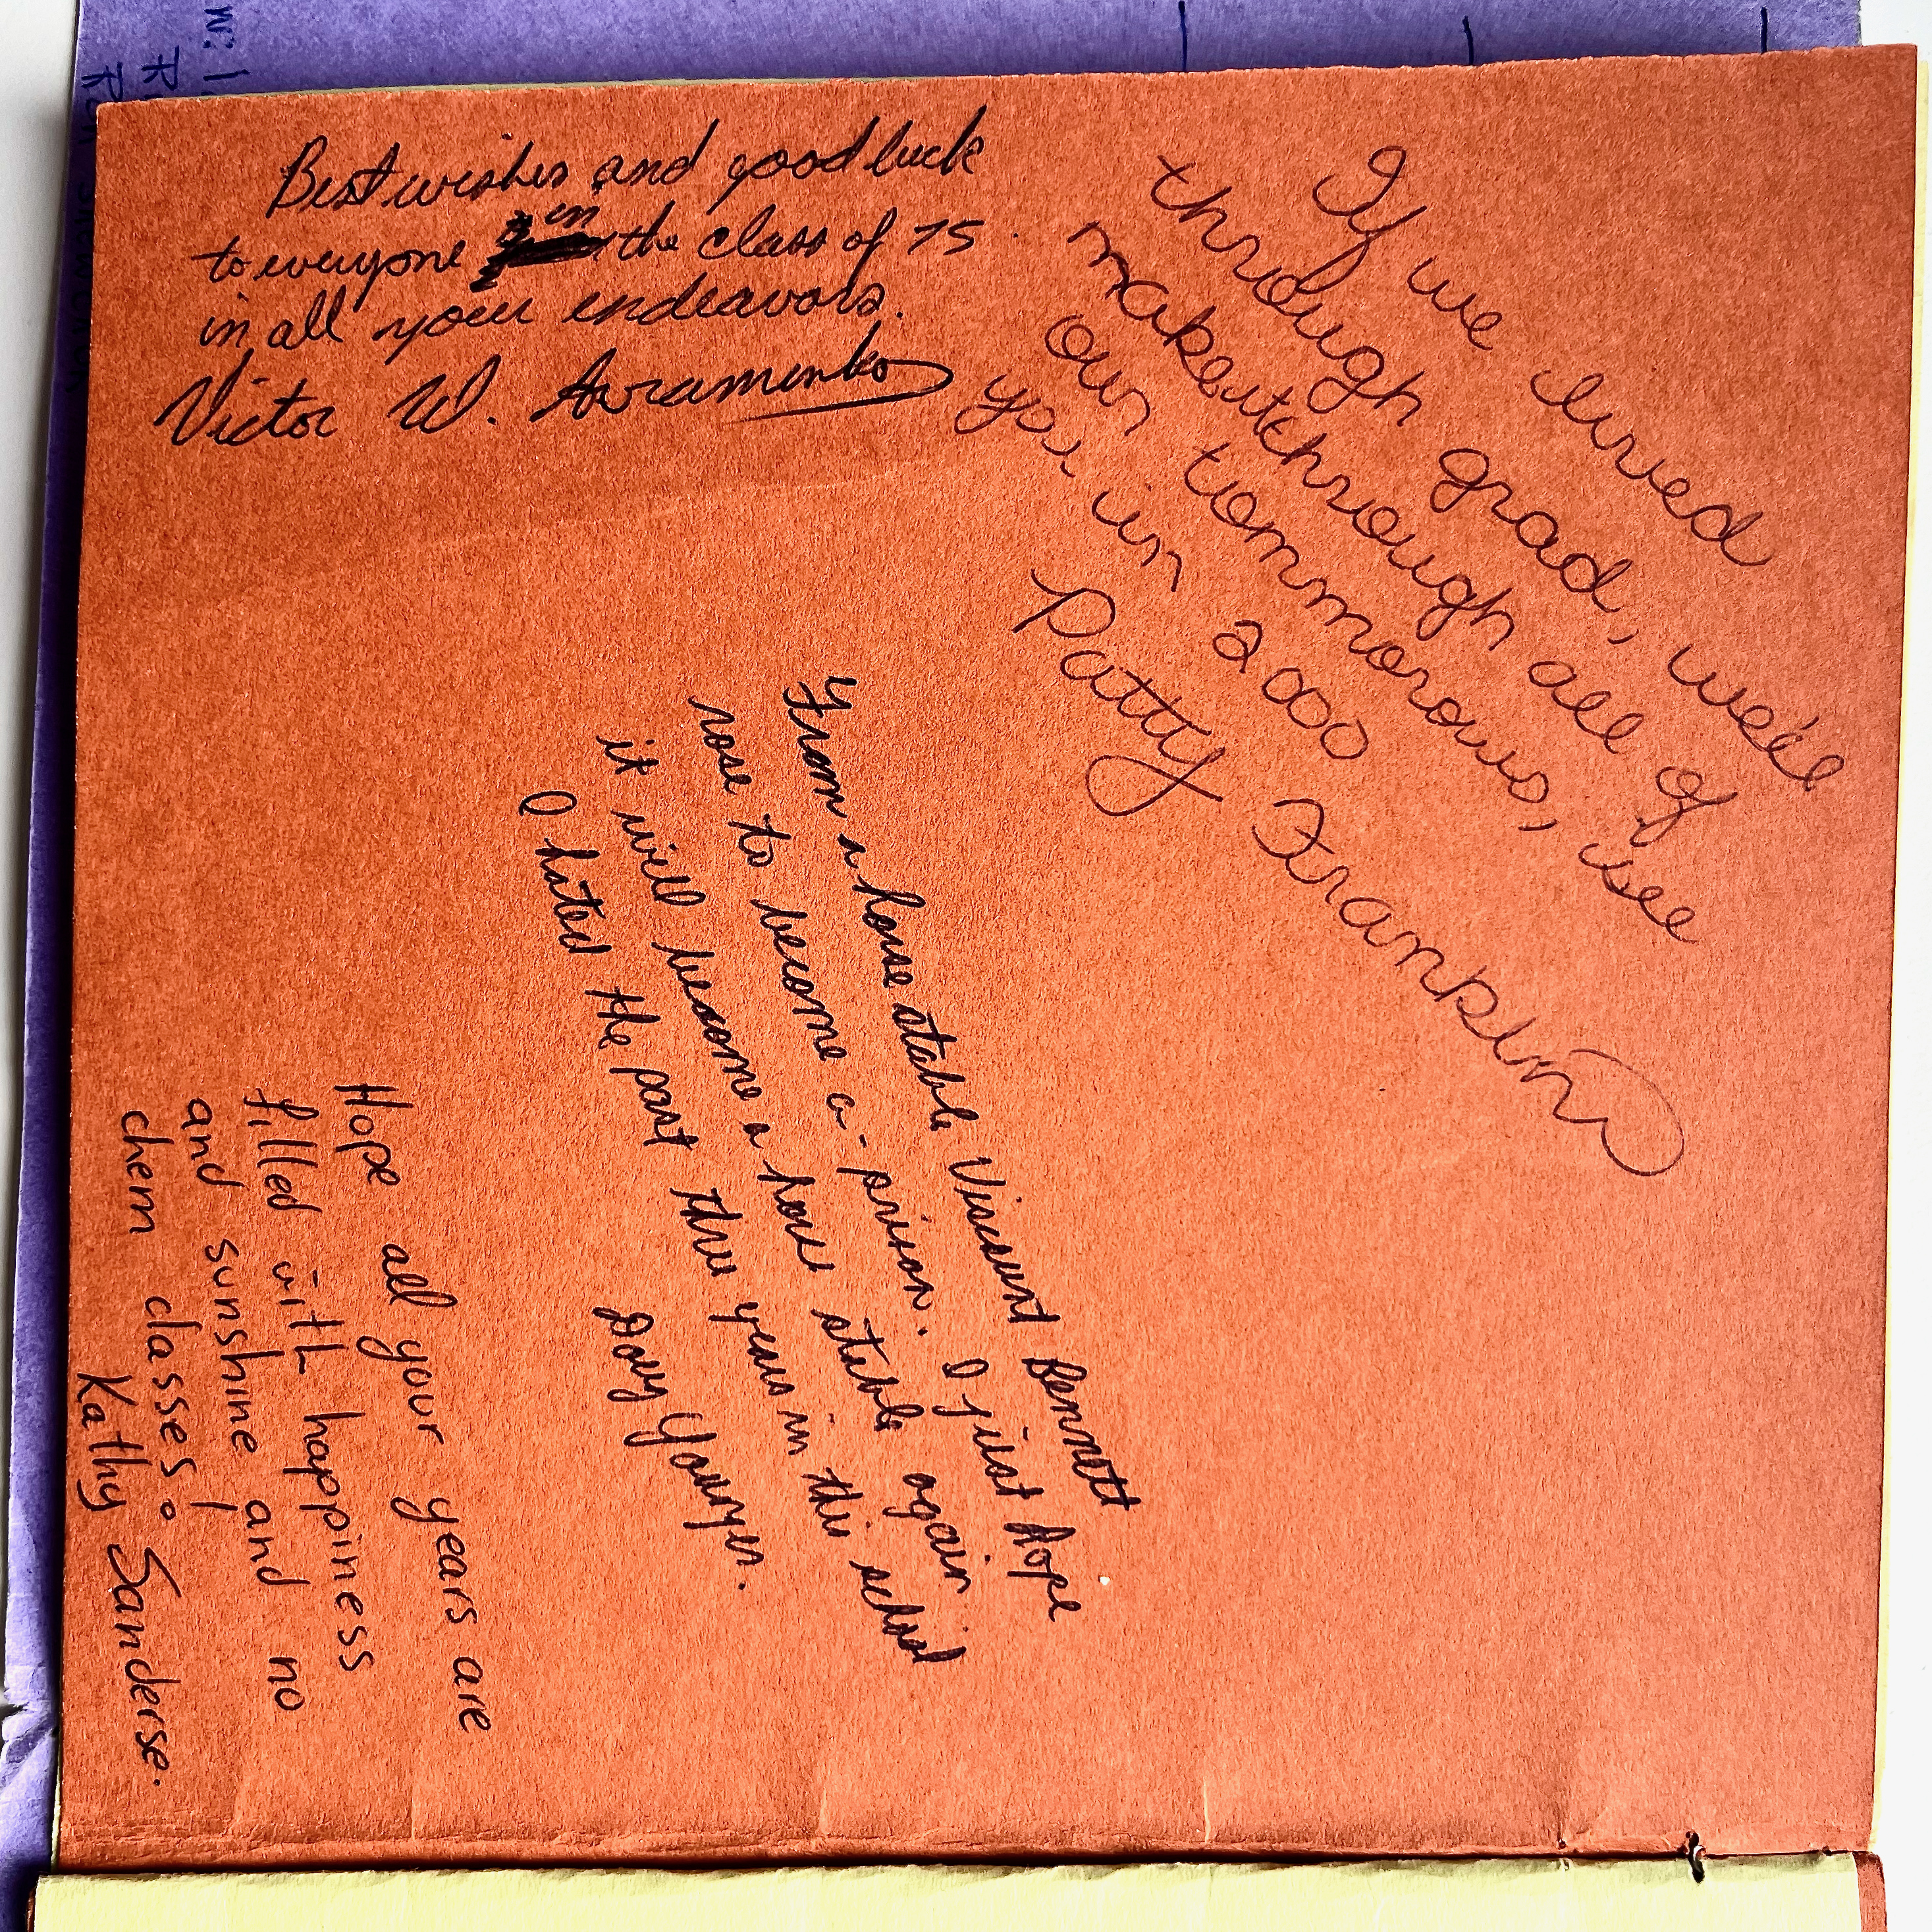 Best wishes and good luck
to everyone in the class of 75
in all your endeavors.
Victor W. Avramenko
If we lived
through grad, we'll
make it through all of
our tommorows, see
you in 2000
Patty Frankin
From a horse stable Viscount Bennett
rose to become a prison. I just hope
it will become a horse stable again
I hated the past three years in this school
Doug Younger.
Hope all your years are
filled with happiness
and sunshine and no
chem classes!
Kathy Sanderse.